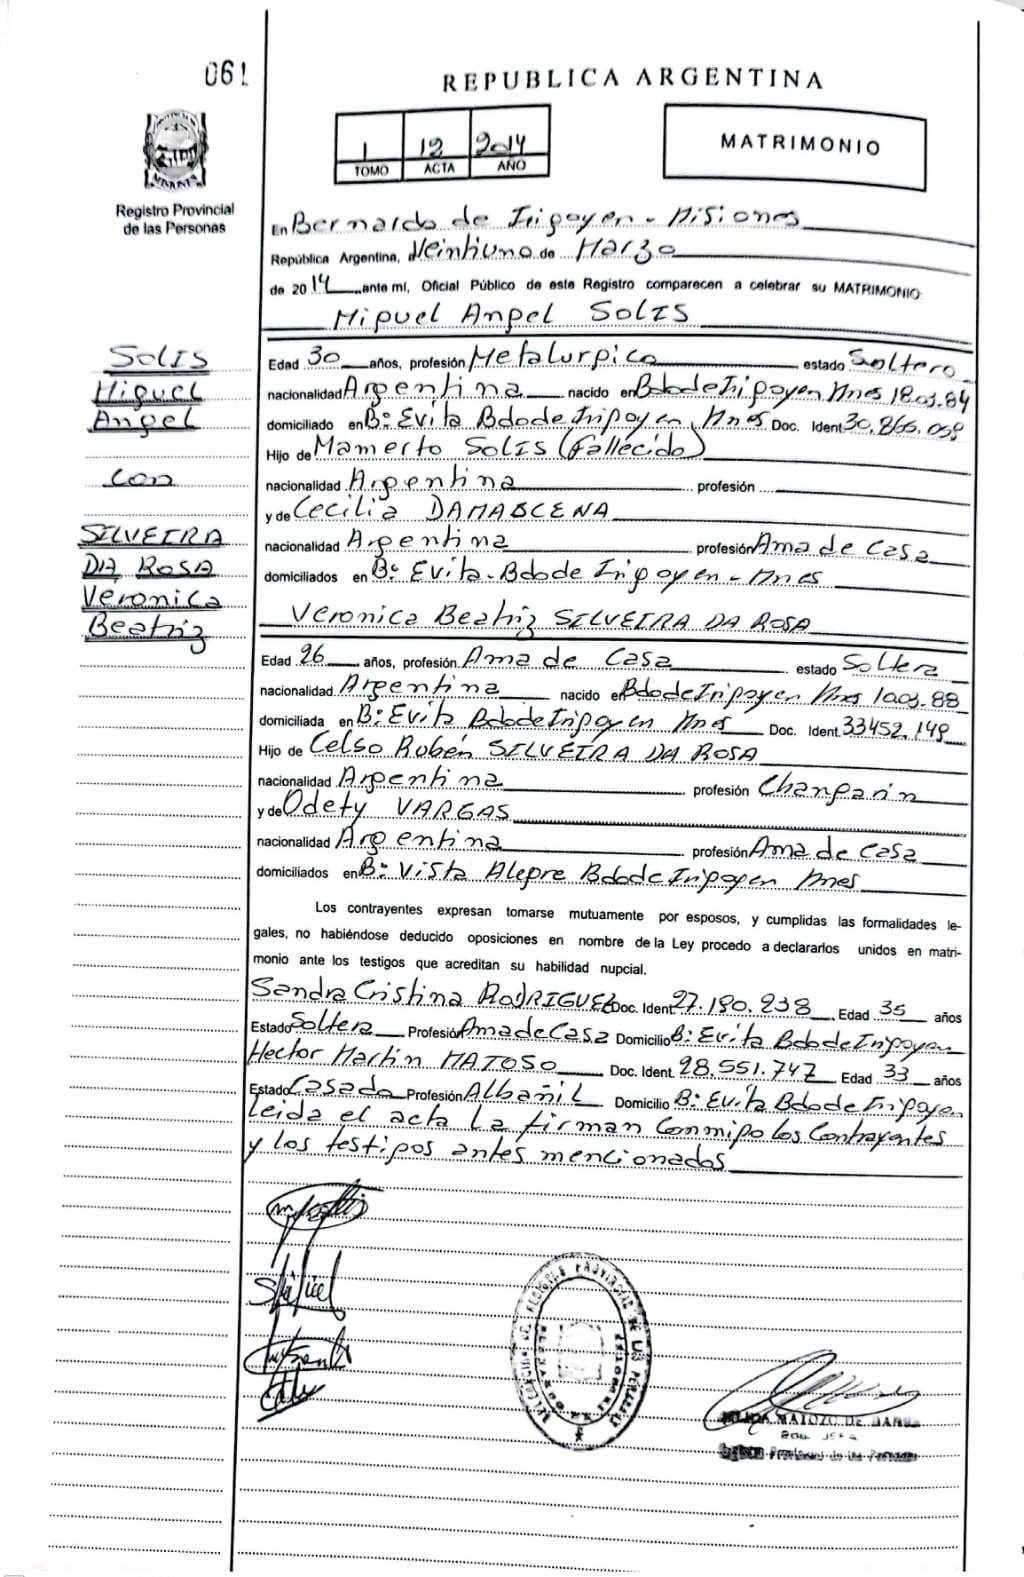 061
REPUBLICA ARGENTINA
1 12 2014
TOMO ACTA AÑO
MATRIMONIO
Registro Provincial
de las Personas
En Bernardo de Irigoyen - Misiones
República Argentina, a Veintiuno de Marzo
de 2014 ante mí, Oficial Público de este Registro comparecen a celebrar su MATRIMONIO
Miguel Angel SOLIS
SOLIS
Miguel
Angel
con
SILVEIRA
DA ROSA
Veronica
Beatriz
Edad 30 años, profesión Metalurgico estado Soltero
nacionalidad Argentina nacido en Bdo de Irigoyen Mnes 18.03.84
domiciliado en B: Evita Bdo de Irigoyen Mnes Doc. Ident.
Hijo de Mamerto SOLIS (fallecido)
nacionalidad Argentina profesión
y de Cecilia DAMASCENA
nacionalidad Argentina profesión Ama de Casa
domiciliados en B: Evita - Bdo de Irigoyen - Mnes
Veronica Beatriz SILVEIRA DA ROSA
Edad 26 años, profesión Ama de Casa estado Soltera
nacionalidad Argentina nacido en Bdo de Irigoyen Mnes 10.03.88
domiciliada en B: Evita Bdo de Irigoyen Mnes Doc. Ident. 33452.149
Hijo de Celso Rubén SILVEIRA DA ROSA
nacionalidad Argentina profesión Changarín
y de Odety VARGAS
nacionalidad Argentina profesión Ama de Casa
domiciliados en B: Vista Alegre Bdo de Irigoyen Mnes
Los contrayentes expresan tomarse mutuamente por esposos, y cumplidas las formalidades le-
gales, no habiéndose deducido oposiciones en nombre de la Ley procedo a declararlos unidos en matri-
monio ante los testigos que acreditan su habilidad nupcial.
Sandra Cristina RODRIGUEZ Doc. Ident. 27.190.238 Edad 35 años
Estado Soltera Profesión Ama de Casa Domicilio B: Evita Bdo de Irigoyen
Hector Martin MATOSO Doc. Ident. 28.551.747 Edad 33 años
Estado Casado Profesión Albañil Domicilio B: Evita Bdo de Irigoyen
leida el acta la firman Conmigo los Contrayentes
y los testigos antes mencionados